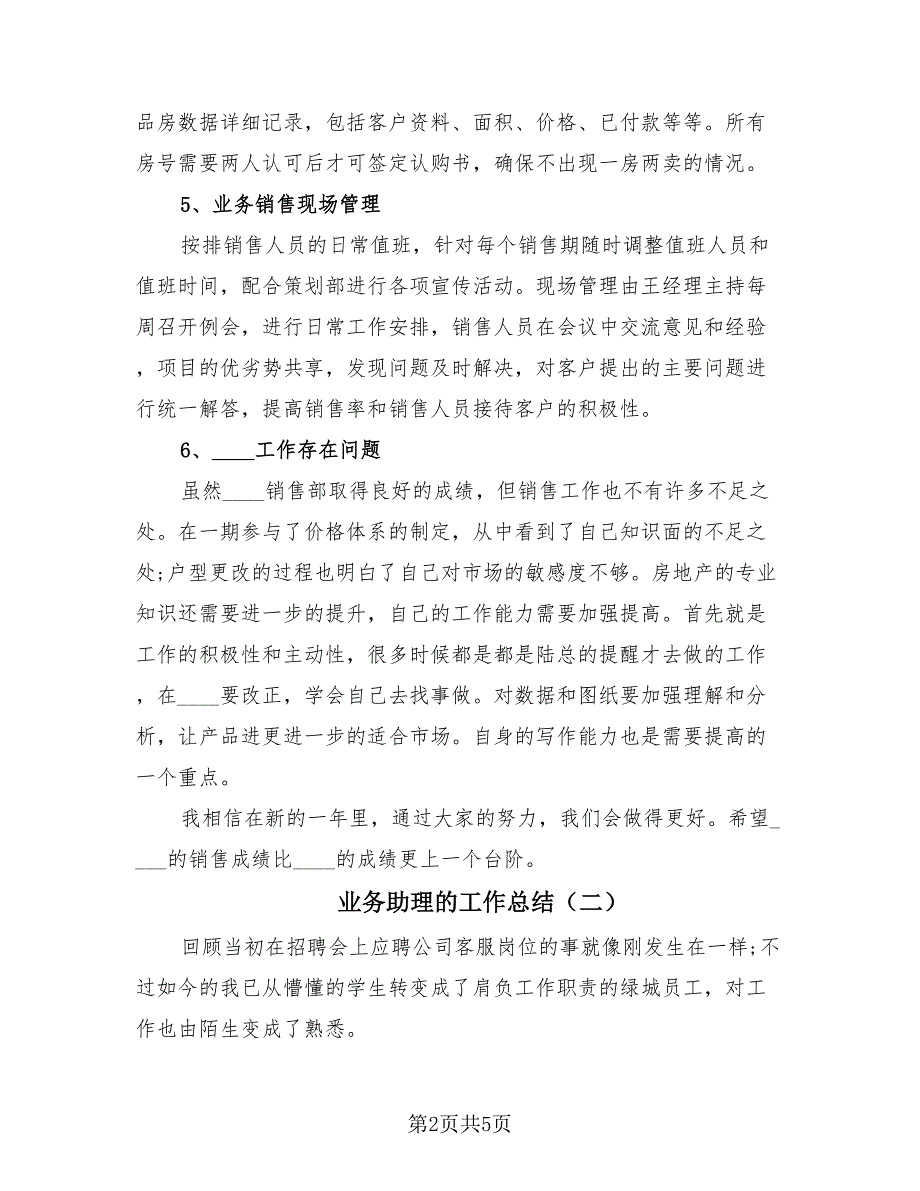 品房数据详细记录，包括客户资料、面积、价格、已付款等等。所有
房号需要两人认可后才可签定认购书，确保不出现一房两卖的情况。
5、业务销售现场管理
按排销售人员的日常值班，针对每个销售期随时调整值班人员和
值班时间，配合策划部进行各项宣传活动。现场管理由王经理主持每
周召开例会，进行日常工作安排，销售人员在会议中交流意见和经验
，项目的优劣势共享，发现问题及时解决，对客户提出的主要问题进
行统一解答，提高销售率和销售人员接待客户的积极性。
6、____工作存在问题
虽然____销售部取得良好的成绩，但销售工作也不有许多不足之
处。在一期参与了价格体系的制定，从中看到了自己知识面的不足之
处;户型更改的过程也明白了自己对市场的敏感度不够。房地产的专业
知识还需要进一步的提升，自己的工作能力需要加强提高。首先就是
工作的积极性和主动性，很多时候都是都是陆总的提醒才去做的工作
，在____要改正，学会自己去找事做。对数据和图纸要加强理解和分
析，让产品进更进一步的适合市场。自身的写作能力也是需要提高的
一个重点。
我相信在新的一年里，通过大家的努力，我们会做得更好。希望_
___的销售成绩比____的成绩更上一个台阶。
业务助理的工作总结（二）
回顾当初在招聘会上应聘公司客服岗位的事就像刚发生在一样;不
过如今的我已从懵懂的学生转变成了肩负工作职责的绿城员工，对工
作也由陌生变成了熟悉。
第2页共5页